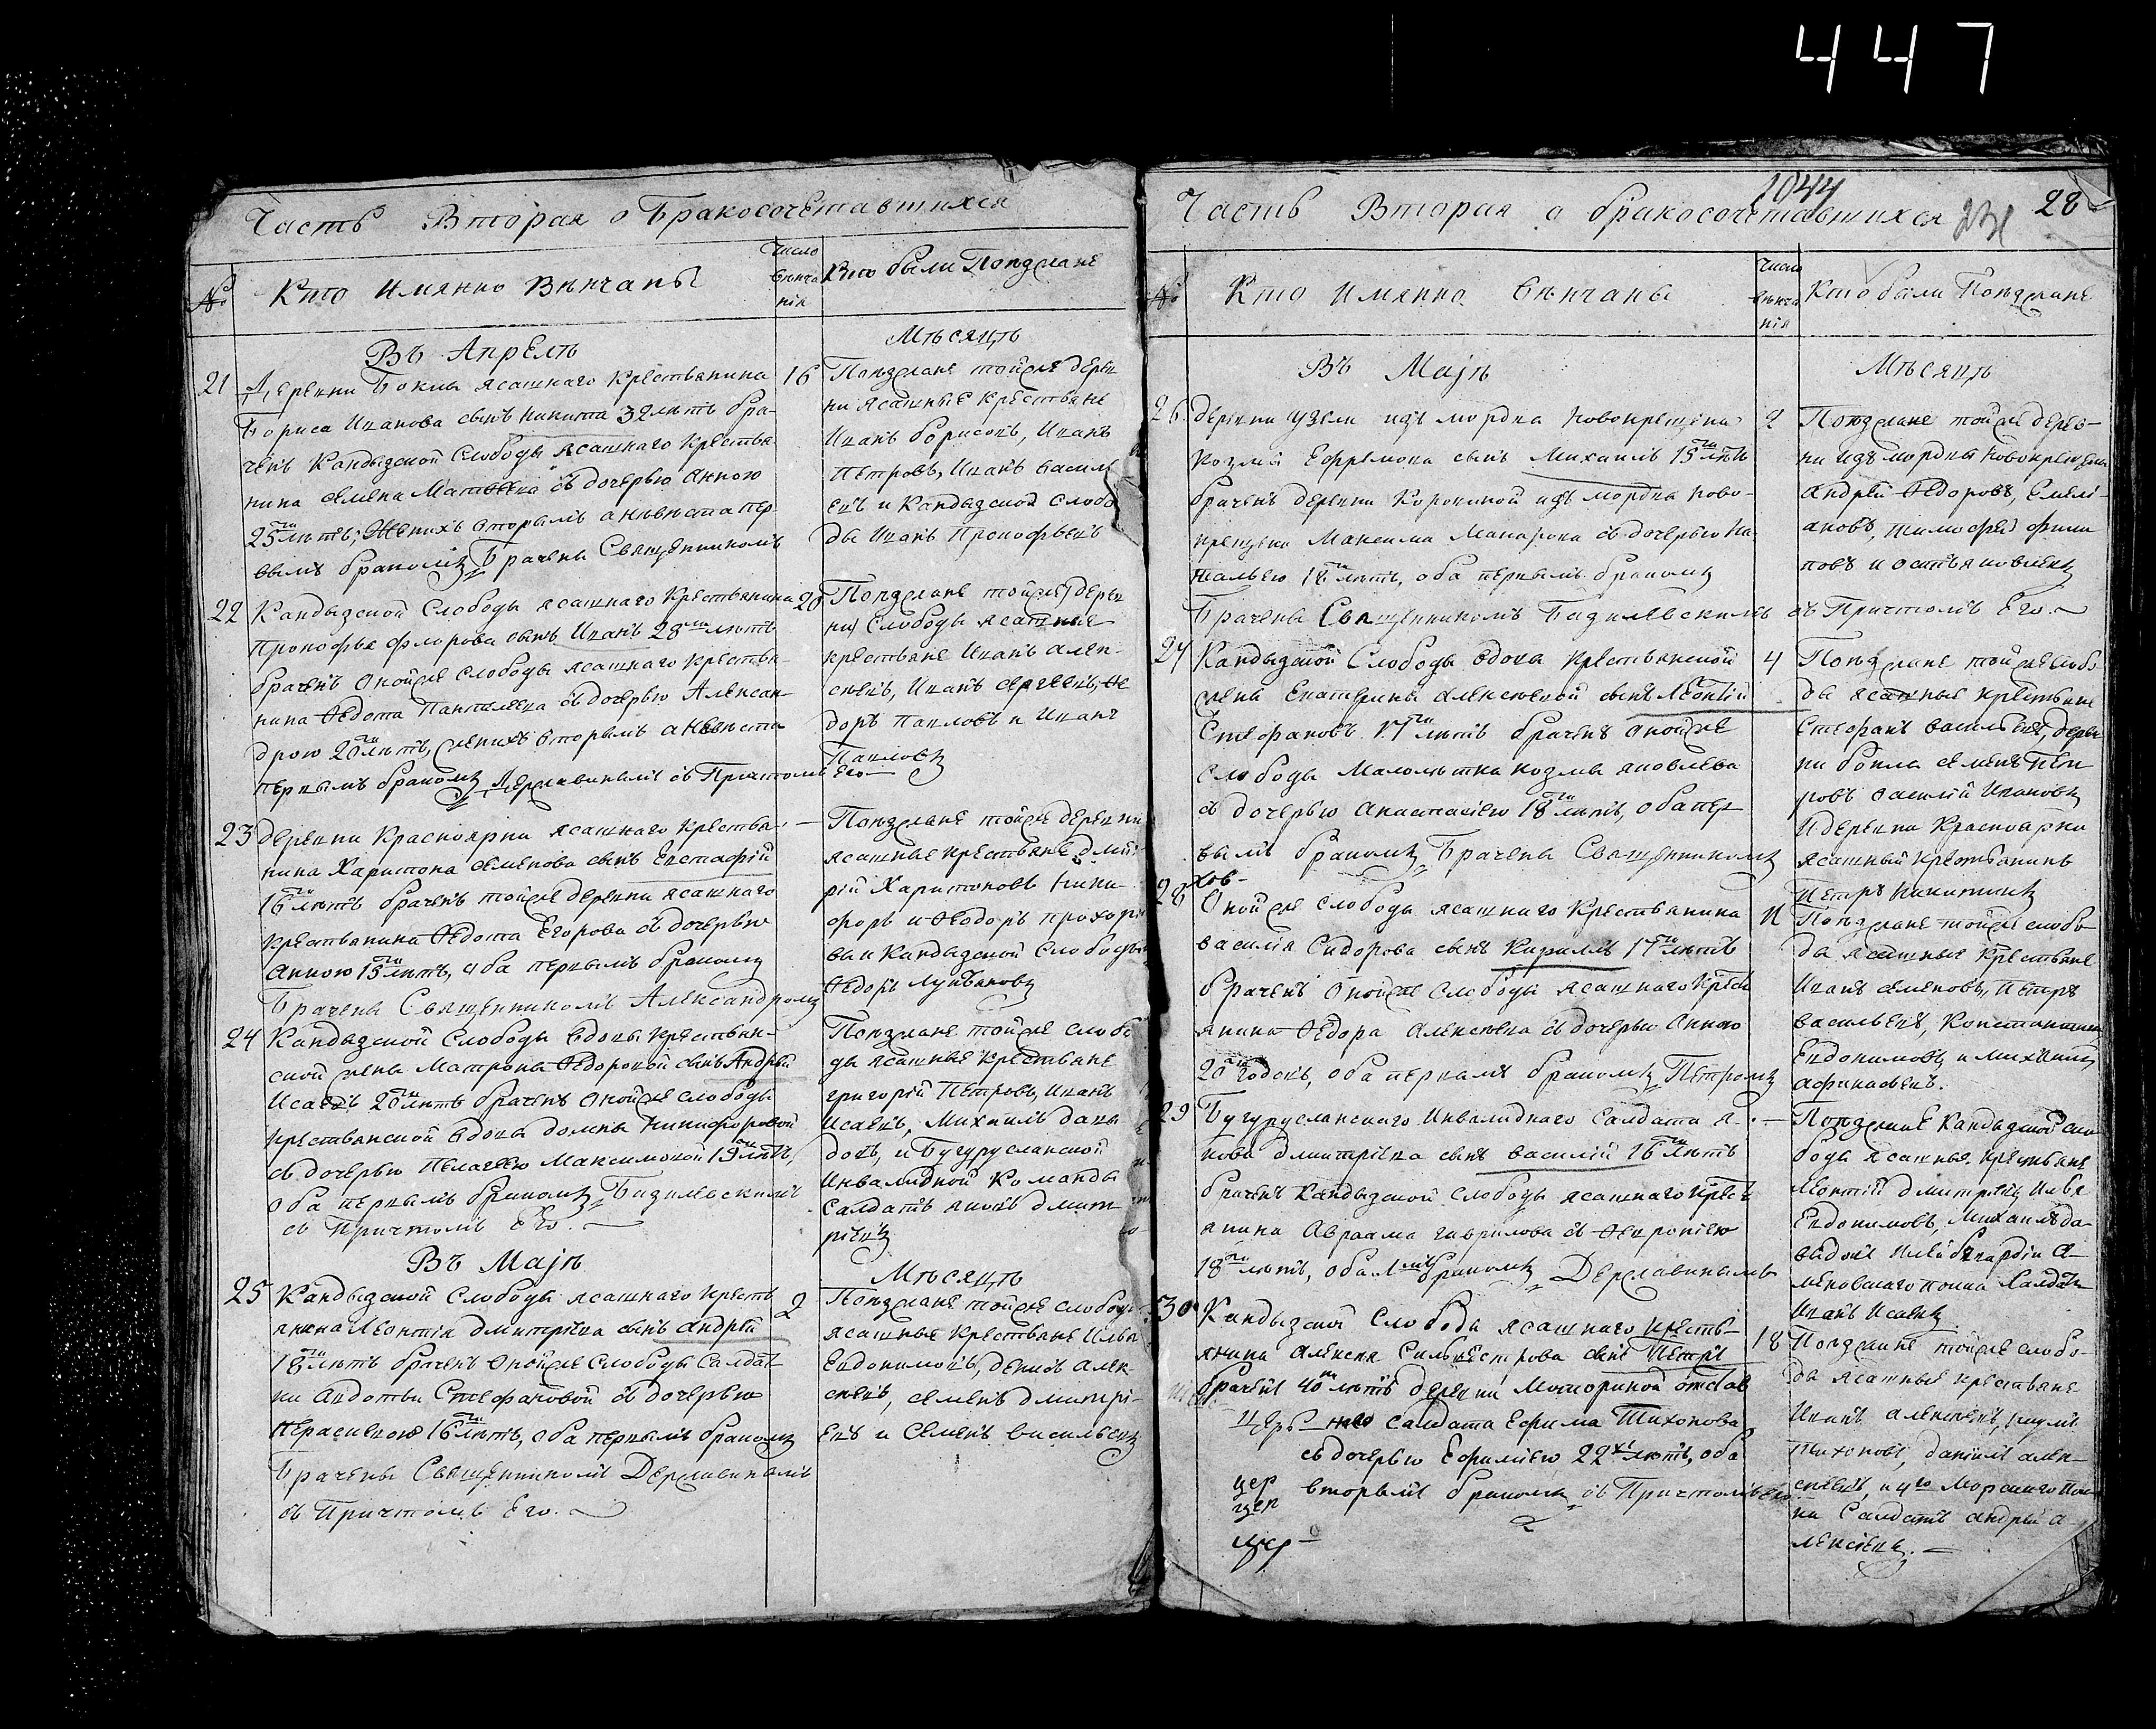 447
Часть Вторая о Бракосочетавшихся
№
Кто имянно Венчаны
Число венча нія
Кто были Поѣзжане
Въ Апрелѣ
Мѣсяцѣ
21
Деревни Бокла ясашнаго крестьянина
Бориса Иванова сынъ Никита 32 лѣтъ бра-
ченъ Кандызской Слободы ясашнаго крестья
нина Семена Матвеева съ дочерью Анною
25ти лѣтъ; Женихъ вторымъ а невѣста пер
вымъ бракомъ Брачены Священникомъ
16
Поѣзжане тойже дерев
ни ясашные крестьяне
Иванъ Борисовъ, Иванъ
Петровъ, Иванъ Василь
евъ и Кандызской Слобо
ды Иванъ Прокофьевъ
22
Кандызской Слободы ясашнаго крестьянина
Прокофья Флорова сынъ Иванъ 28ми лѣтъ
браченъ Онойже слободы ясашнаго крестья-
нина Ѳедота Пантелеева съ дочерью Алексан-
дрою 20ти лѣтъ, женихъ вторымъ а невѣста
первымъ бракомъ Державинымъ съ Причтомъ Его
20
Поѣзжане тойже дерев
ни Слободы ясашные
крестьяне Иванъ Алек-
сеевъ, Иванъ Сергеевъ, Ѳе
доръ Павловъ и Иванъ
Павловъ
23
деревни Красноярки ясашнаго крестья-
нина Харитона Семенова сынъ Евстафій
16ти лѣтъ браченъ тойже деревни ясашнаго
крестьянина Ѳедота Егорова съ дочерью
Анною 15ти лѣтъ, оба первымъ бракомъ
Брачены Священникомъ Александромъ
—
Поѣзжане тойже деревни
ясашные крестьяне Дмит
рій Харитоновъ Ники-
форъ и Ѳедоръ Прохоро
вы и Кандызской Слободы
Ѳедоръ Лукьяновъ
24
Кандызской Слободы вдовы крестьян-
ской жены Матроны Ѳедоровой сынъ Андрей
Исаевъ 20ти лѣтъ браченъ Онойже слободы
крестьянской вдовы Домны Никифоровой
съ дочерью Пелагеею Максимовой 19ти лѣтъ,
оба первымъ бракомъ Базилевскимъ
съ Причтомъ Его. —
Поѣзжане тойже слобо
ды ясашные крестьяне
Григорій Петровъ, Иванъ
Исаевъ, Михаилъ Давы
довъ, и Бугурусланской
Инвалидной Команды
Салдатъ Яковъ Дмит
ріевъ
Въ Маіѣ
Мѣсяцѣ
25
Кандызской Слободы ясашнаго кресть
янина Леонтія Дмитріева сынъ Андрей
18ти лѣтъ браченъ Онойже Слободы Салдат
ки Авдотьи Стефановой съ дочерью
Перасковею 16ти лѣтъ, оба первымъ бракомъ
Брачены Священникомъ Державинымъ
съ Причтомъ Его. —
2
Поѣзжане тойже слободы
ясашные крестьяне Илья
Евдокимовъ, Денисъ Алек
сеевъ, Семенъ Дмитрі-
евъ и Семенъ Васильевъ
1044
28
Часть Вторая о бракосочетавшихся
№
Кто Имянно венчаны
Число венча нія
Кто были Поѣзжане
Въ Маіѣ
Мѣсяцѣ
26
деревни Узели изъ мордва Новокрещена
Козмы Ефремова сынъ Михаилъ 15ти лѣтъ
браченъ деревни Коровиной изъ мордва ново-
крещена Максима Макарова съ дочерью На-
тальею 18ти лѣтъ, оба первымъ бракомъ
Брачены Священникомъ Базилевскимъ съ Причтомъ Его. —
2
Поѣзжане тойже дерев-
ни изъ мордвы новокрещены
Андрей Ѳедоровъ, Емелі-
ановъ, Тимофей Фили
повъ
27
Кандызской Слободы вдова крестьянской
жены Екатерины Алексеевой сынъ Леонтій
Стефановъ 17ти лѣтъ браченъ Онойже
слободы Малолѣтка Козмы Яковлева
съ дочерью Анастасіею 18ти лѣтъ, оба пер
вымъ бракомъ Брачены Священникомъ
4
Поѣзжане тойже слобо
ды ясашные крестьяне
Стефанъ Васильевъ, дерев
ни Бокла Семенъ Пет
ровъ Василій Ивановъ
и деревни Красноярки
ясашный крестьянинъ
Петръ Никитинъ
28
Онойже слободы ясашнаго крестьянина
Василія Сидорова сынъ Кирилъ 17ти лѣтъ
браченъ Онойже Слободы ясашнаго кресть
янина Ѳедора Алексеева съ дочерью Анною
20ти годовъ, оба первымъ бракомъ Петромъ
11
Поѣзжане тойже слобо
ды ясашные крестьяне
Иванъ Семеновъ, Петръ
Васильевъ, Константинъ
Евдокимовъ и Михаилъ
Афонасьевъ.
29
Бугурусланскаго Инвалиднаго Салдата Я-
кова Дмитріева сынъ Василій 16ти лѣтъ
браченъ Кандызской слободы ясашнаго крест
янина Авраама Гаврилова съ Ѳевроніею
18ти лѣтъ, оба 1мъ бракомъ Державинымъ
—
Поѣзжане Кандызской сло
боды ясашные крестьяне
Леонтій Дмитріевъ Илья
Евдокимовъ, Михаилъ Да-
выдовъ
Салдатъ
Иванъ Исаевъ
30
Кандызской Слободы ясашнаго кресть-
янина Алексея Силвестрова сынъ Петръ
браченъ 40ти лѣтъ деревни Моториной отстав
наго салдата Ефима Тихонова
съ дочерью Ефиміею 22хъ лѣтъ, оба
вторымъ бракомъ съ Причтомъ Его
18
Поѣзжане тойже слобо-
ды ясашные крестьяне
Иванъ Алексеевъ, Наумъ
Тихоновъ, Даніилъ Алек-
сеевъ, и 4го Морскаго Пол
ка Салдатъ Андрей А-
лексіевъ. —
цер
цер